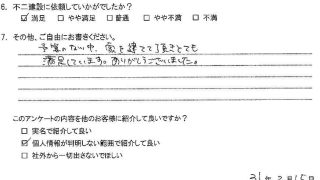 6. 不二建設に依頼していかがでしたか?
☑ 満足 □ やや満足 □ 普通 □ やや不満 □ 不満
7. その他、ご自由にお書きください。
予算のない中、家を建てて頂きとても
満足しています。ありがとうございました。
このアンケートの内容を他のお客様に紹介して良いですか?
□ 実名で紹介して良い
☑ 個人情報が判明しない範囲で紹介して良い
□ 社外から一切出さないでほしい
31年2月15日